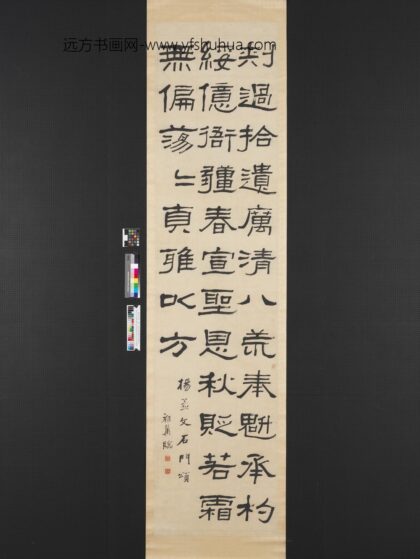 远方书画网-www.yfshuhua.com
刾過拾遺厲清八荒奉魁承杓
綏億衙彊春宣聖恩秋貶若霜
無偏蕩〻貞雅以方
楊孟文石門頌